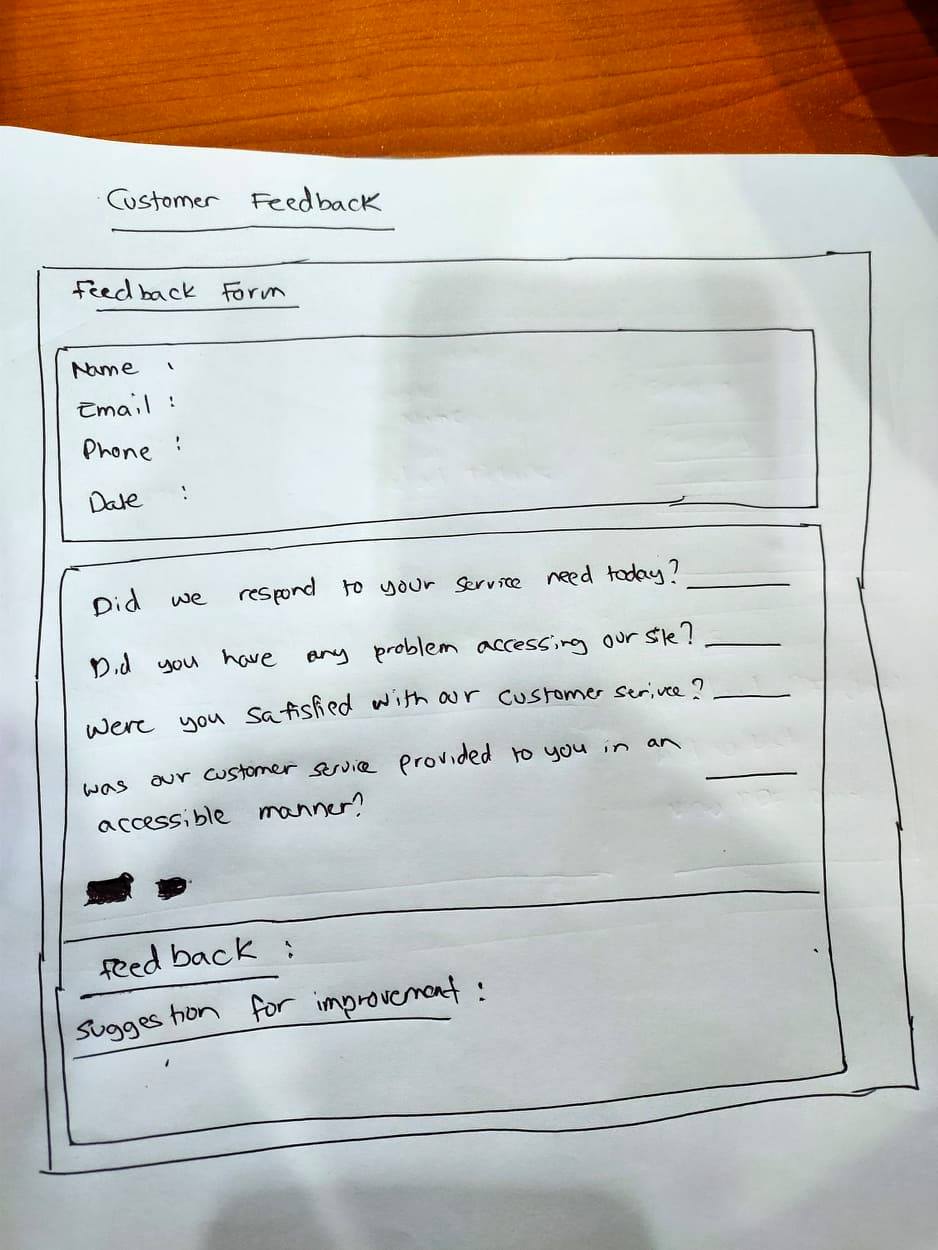 Customer Feedback
Feedback Form
Name :
Email :
Phone :
Date :
Did we respond to your service need today? ______
Did you have any problem accessing our site? ______
Were you satisfied with our customer serivce? ______
was our customer service provided to you in an ______
accessible manner?
feedback :
suggestion for improvement :